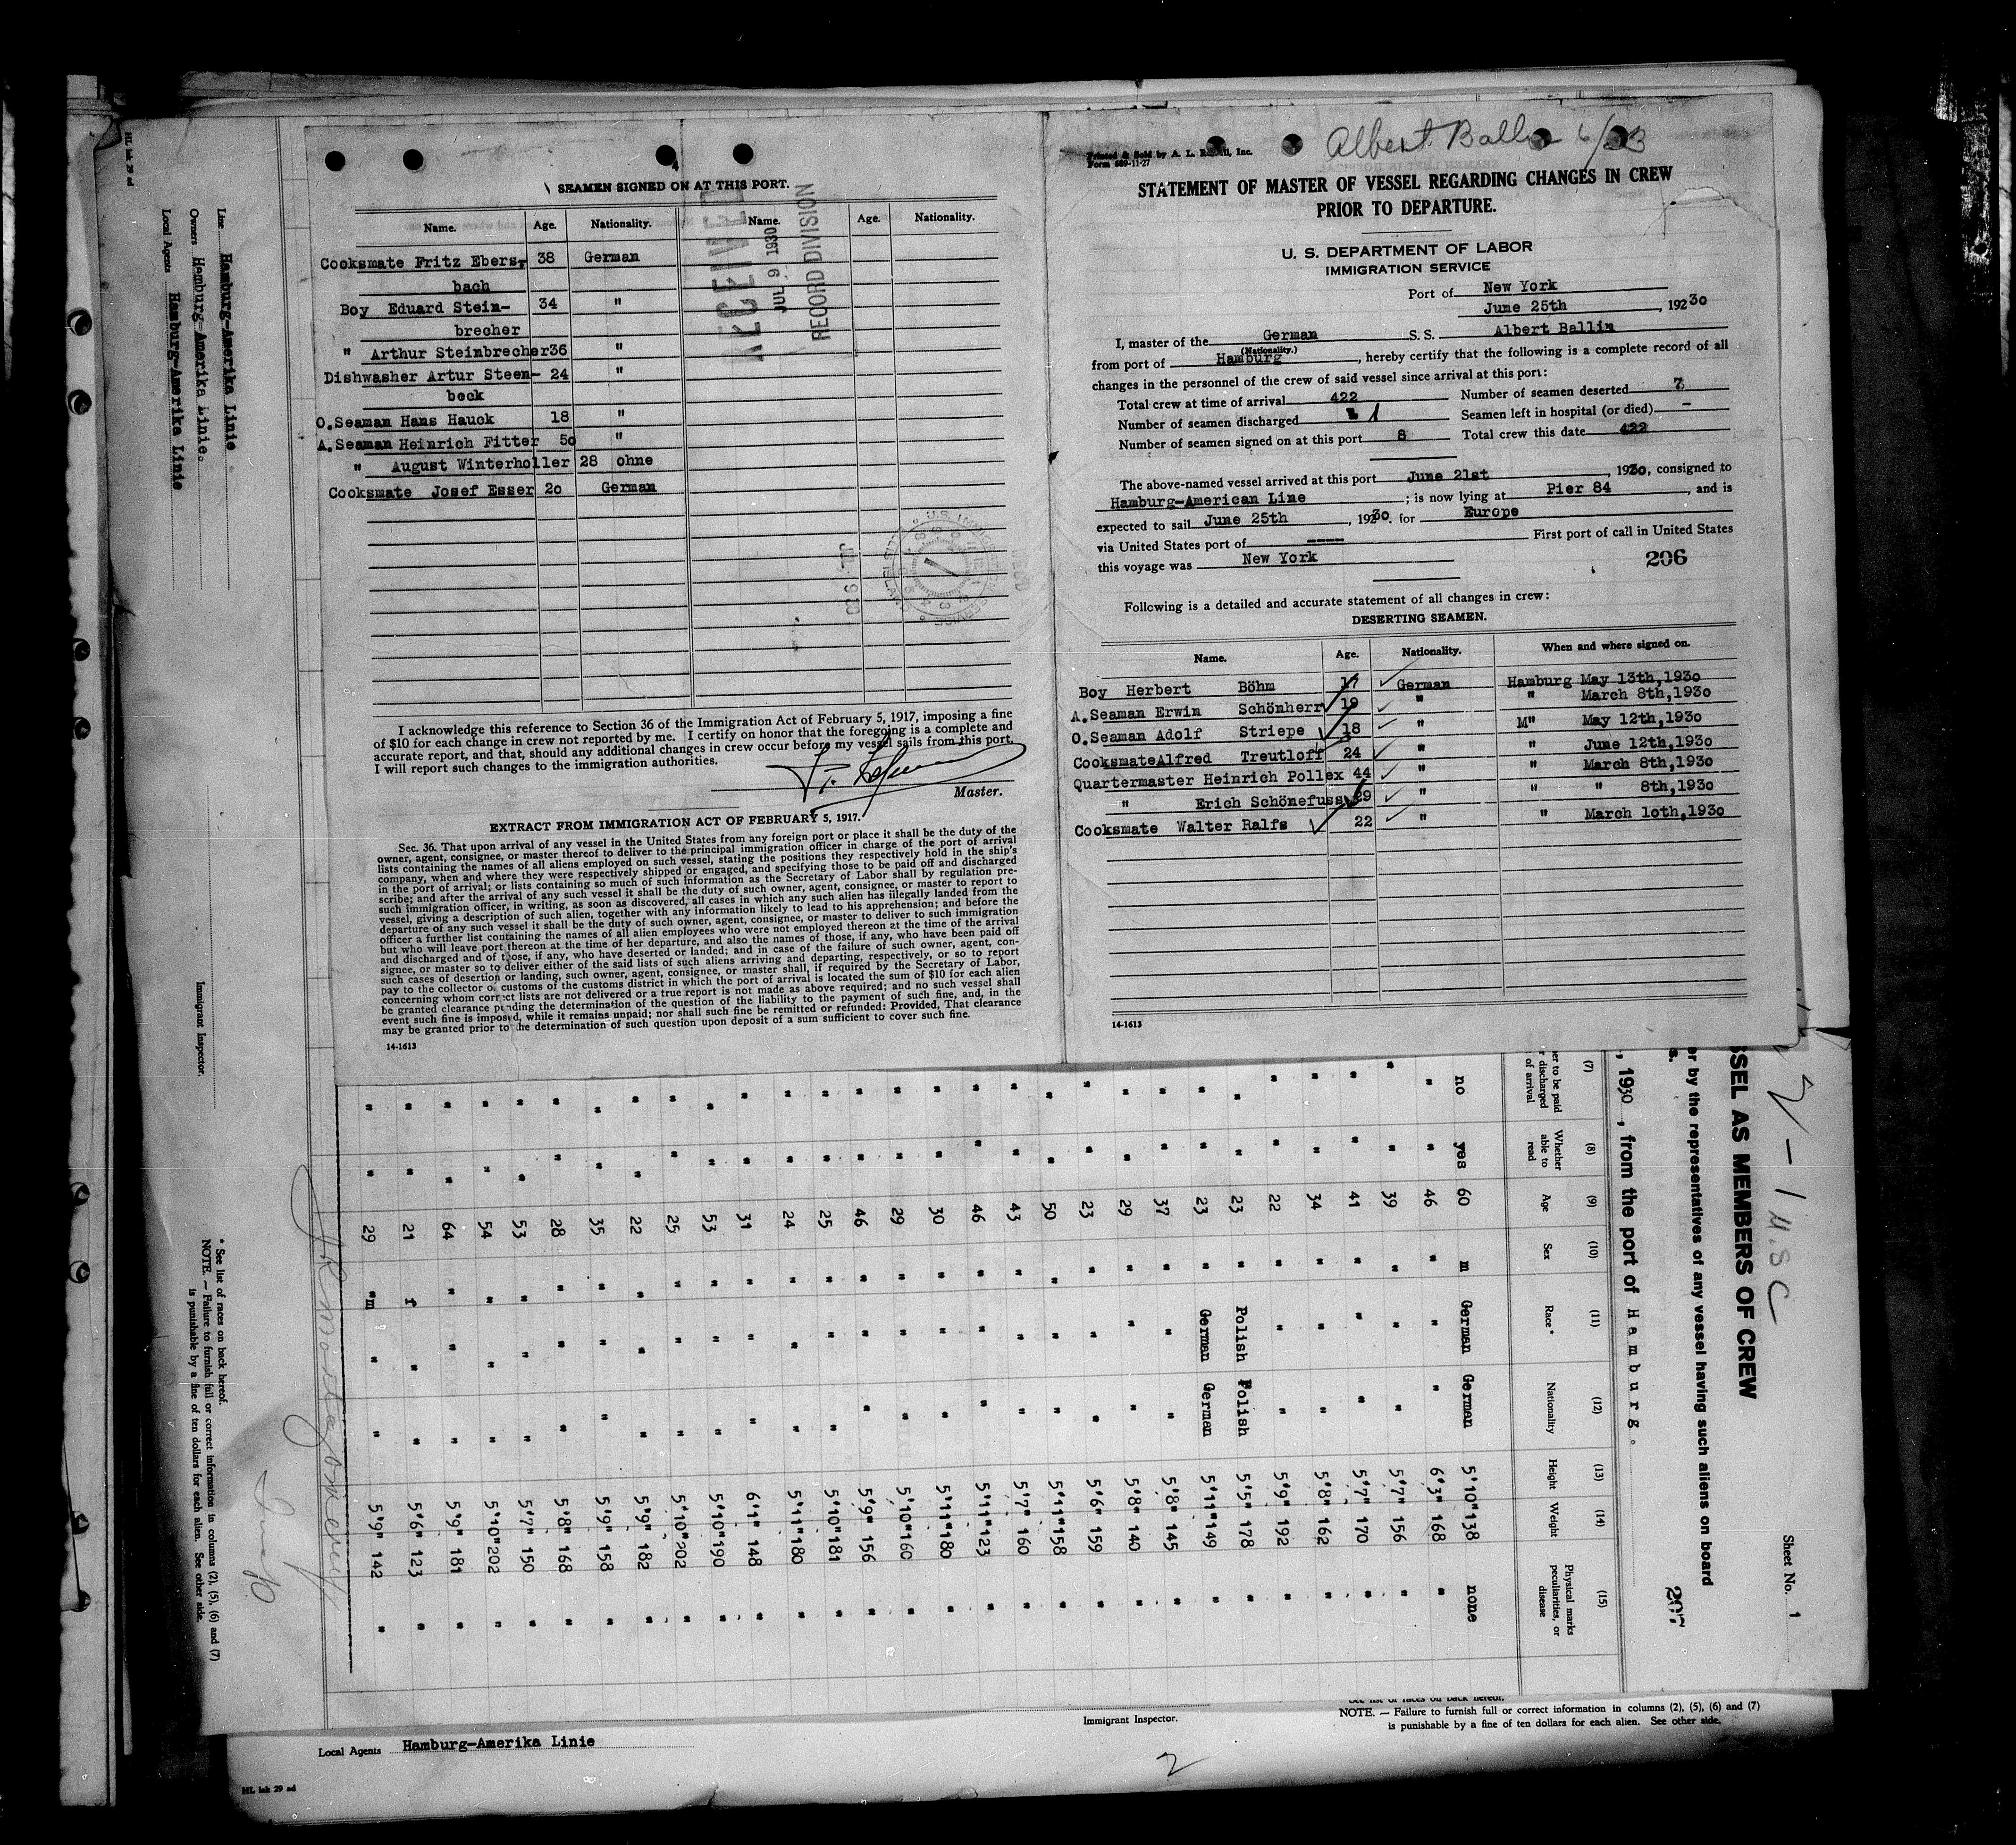 4
SEAMEN SIGNED ON AT THIS PORT.
Name. Age. Nationality. Name. Age. Nationality.
Cooksmate Fritz Ebers- 38 German
bach
Boy Eduard Stein- 34 "
brecher
" Arthur Steinbrecher 36 "
Dishwasher Artur Steen- 24 "
beck
O.Seaman Hans Hauck 18 "
A.Seaman Heinrich Fitter 50 "
" August Winterholler 28 ohne
Cooksmate Josef Esser 20 German
RECEIVED
JUL 9 1930
RECORD DIVISION
I acknowledge this reference to Section 36 of the Immigration Act of February 5, 1917, imposing a fine
of $10 for each change in crew not reported by me. I certify on honor that the foregoing is a complete and
accurate report, and that, should any additional changes in crew occur before my vessel sails from this port,
I will report such changes to the immigration authorities.
Master.
EXTRACT FROM IMMIGRATION ACT OF FEBRUARY 5, 1917.
Sec. 36. That upon arrival of any vessel in the United States from any foreign port or place it shall be the duty of the
owner, agent, consignee, or master thereof to deliver to the principal immigration officer in charge of the port of arrival
lists containing the names of all aliens employed on such vessel, stating the positions they respectively hold in the ship's
company, when and where they were respectively shipped or engaged, and specifying those to be paid off and discharged
in the port of arrival; or lists containing so much of such information as the Secretary of Labor shall by regulation pre-
scribe; and after the arrival of any such vessel it shall be the duty of such owner, agent, consignee, or master to report to
such immigration officer, in writing, as soon as discovered, all cases in which any such alien has illegally landed from the
vessel, giving a description of such alien, together with any information likely to lead to his apprehension; and before the
departure of any such vessel it shall be the duty of such owner, agent, consignee, or master to deliver to such immigration
officer a further list containing the names of all alien employees who were not employed thereon at the time of the arrival
but who will leave port thereon at the time of her departure, and also the names of those, if any, who have been paid off
and discharged and of those, if any, who have deserted or landed; and in case of the failure of such owner, agent, con-
signee, or master so to deliver either of the said lists of such aliens arriving and departing, respectively, or so to report
such cases of desertion or landing, such owner, agent, consignee, or master shall, if required by the Secretary of Labor,
pay to the collector of customs of the customs district in which the port of arrival is located the sum of $10 for each alien
concerning whom correct lists are not delivered or a true report is not made as above required; and no such vessel shall
be granted clearance pending the determination of the question of the liability to the payment of such fine, and, in the
event such fine is imposed, while it remains unpaid; nor shall such fine be remitted or refunded: Provided, That clearance
may be granted prior to the determination of such question upon deposit of a sum sufficient to cover such fine.
14-1613
Printed & Sold by A. L. Inc.
Form 689-11-27
Albert Ballin 6/23
STATEMENT OF MASTER OF VESSEL REGARDING CHANGES IN CREW
PRIOR TO DEPARTURE.
U. S. DEPARTMENT OF LABOR
IMMIGRATION SERVICE
Port of New York
June 25th, 1930
I, master of the German S. S. Albert Ballin
(Nationality.)
from port of Hamburg, hereby certify that the following is a complete record of all
changes in the personnel of the crew of said vessel since arrival at this port:
Total crew at time of arrival 422 Number of seamen deserted 7
Number of seamen discharged 1 Seamen left in hospital (or died) -
Number of seamen signed on at this port 8 Total crew this date 422
The above-named vessel arrived at this port June 21st, 1930, consigned to
Hamburg-American Line; is now lying at Pier 84, and is
expected to sail June 25th, 1930. for Europe
via United States port of ---- First port of call in United States
this voyage was New York
206
Following is a detailed and accurate statement of all changes in crew:
DESERTING SEAMEN.
Name. Age. Nationality. When and where signed on.
Boy Herbert Böhm 17 German Hamburg May 13th,1930
A.Seaman Erwin Schönherr 19 " " March 8th,1930
O.Seaman Adolf Striepe 18 " M" May 12th,1930
Cooksmate Alfred Treutloff 24 " " June 12th,1930
Quartermaster Heinrich Pollex 44 " " March 8th,1930
" Erich Schönefuss 29 " " " 8th,1930
Cooksmate Walter Ralfs 22 " " March 10th,1930
14-1613
SSEL AS MEMBERS OF CREW
er by the representatives of any vessel having such aliens on board
, 1930, from the port of Hamburg.
Sheet No. 1
207
(7) (8) (9) (10) (11) (12) (13) (14) (15)
er to be paid r discharged of arrival
Whether able to read
Age
Sex
Race *
Nationality
Height
Weight
Physical marks peculiarities, or disease
no yes 60 m German German 5'10" 138 none
" " 46 " " " 6'3" 168 "
" " 39 " " " 5'7" 156 "
" " 41 " " " 5'7" 170 "
" " 34 " " " 5'8" 162 "
" " 22 " " " 5'9" 192 "
" " 23 " Polish Polish 5'5" 178 "
" " 23 " German German 5'11" 149 "
" " 37 " " " 5'8" 145 "
" " 29 " " " 5'8" 140 "
" " 23 " " " 5'6" 159 "
" " 50 " " " 5'11" 158 "
" " 43 " " " 5'7" 160 "
" " 46 " " " 5'11" 123 "
" " 30 " " " 5'11" 180 "
" " 29 " " " 5'10" 160 "
" " 46 " " " 5'9" 156 "
" " 25 " " " 5'10" 181 "
" " 24 " " " 5'11" 180 "
" " 31 " " " 6'1" 148 "
" " 53 " " " 5'10" 190 "
" " 25 " " " 5'10" 202 "
" " 22 " " " 5'9" 182 "
" " 35 " " " 5'9" 158 "
" " 28 " " " 5'8" 168 "
" " 53 " " " 5'7" 150 "
" " 54 " " " 5'10" 202 "
" " 64 " " " 5'9" 181 "
" " 21 f " " 5'6" 123 "
" " 29 "m " " 5'9" 142 "
Line Hamburg-Amerika Linie
Owners Hamburg-Amerika Linie.
Local Agents Hamburg-Amerika Linie
Immigrant Inspector.
* See list of races on back hereof.
NOTE. — Failure to furnish full or correct information in columns (2), (5), (6) and (7)
is punishable by a fine of ten dollars for each alien. See other side.
HL ink 29 ad
See list of races on back hereof.
NOTE. — Failure to furnish full or correct information in columns (2), (5), (6) and (7)
is punishable by a fine of ten dollars for each alien. See other side.
Immigrant Inspector.
Local Agents Hamburg-Amerika Linie
2
HL ink 29 ad